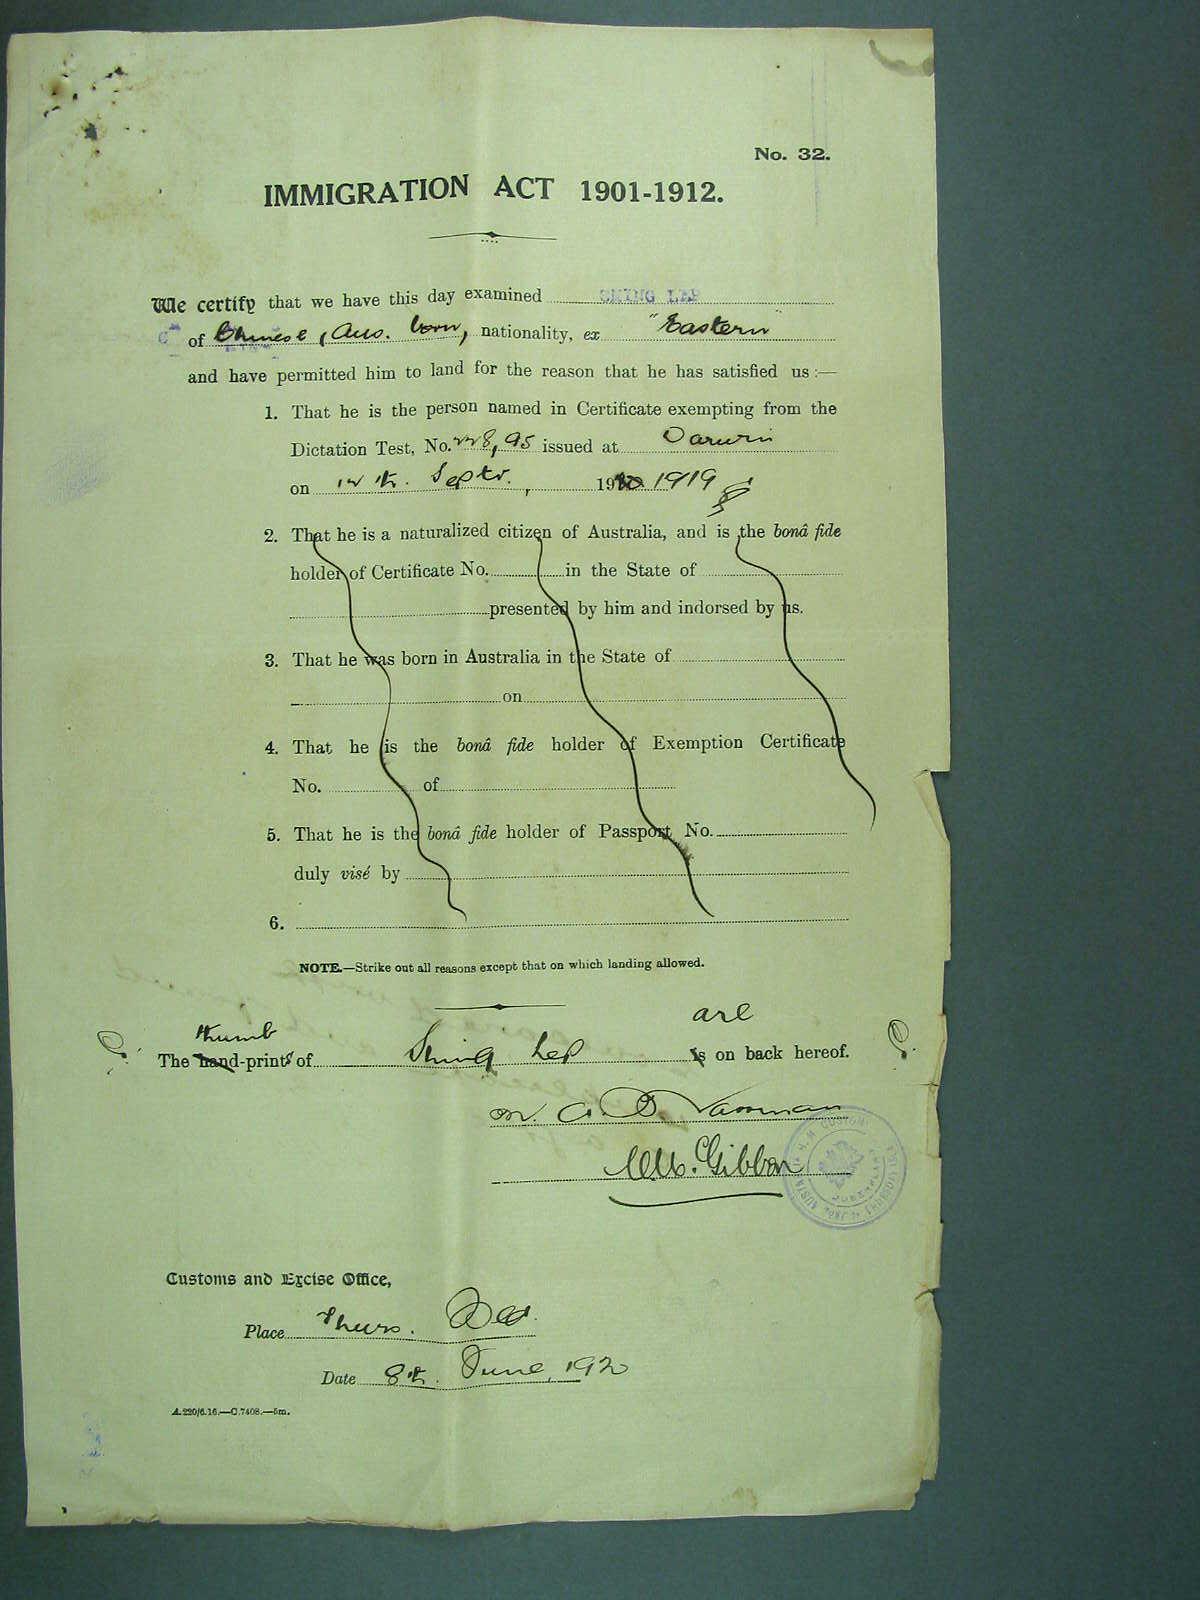 No. 32.
IMMIGRATION ACT 1901-1912.
We certify that we have this day examined SHING LEP
of Chinese, Aus. born, nationality, ex "Eastern"
and have permitted him to land for the reason that he has satisfied us :—
1. That he is the person named in Certificate exempting from the
Dictation Test, No. 228,95 issued at Darwin
on 12th. Septr. , 19 1919
2. That he is a naturalized citizen of Australia, and is the bonâ fide
holder of Certificate No. in the State of
presented by him and indorsed by us.
3. That he was born in Australia in the State of
on
4. That he is the bonâ fide holder of Exemption Certificate
No. of
5. That he is the bonâ fide holder of Passport No.
duly visé by
6.
NOTE.—Strike out all reasons except that on which landing allowed.
thumb are
The hand-prints of Shing Lep is on back hereof.
Gibbon
Customs and Excise Office,
Place Thurs. Isd.
Date 8th. June, 1920
A.220/6.16.—C.7408.—5m.